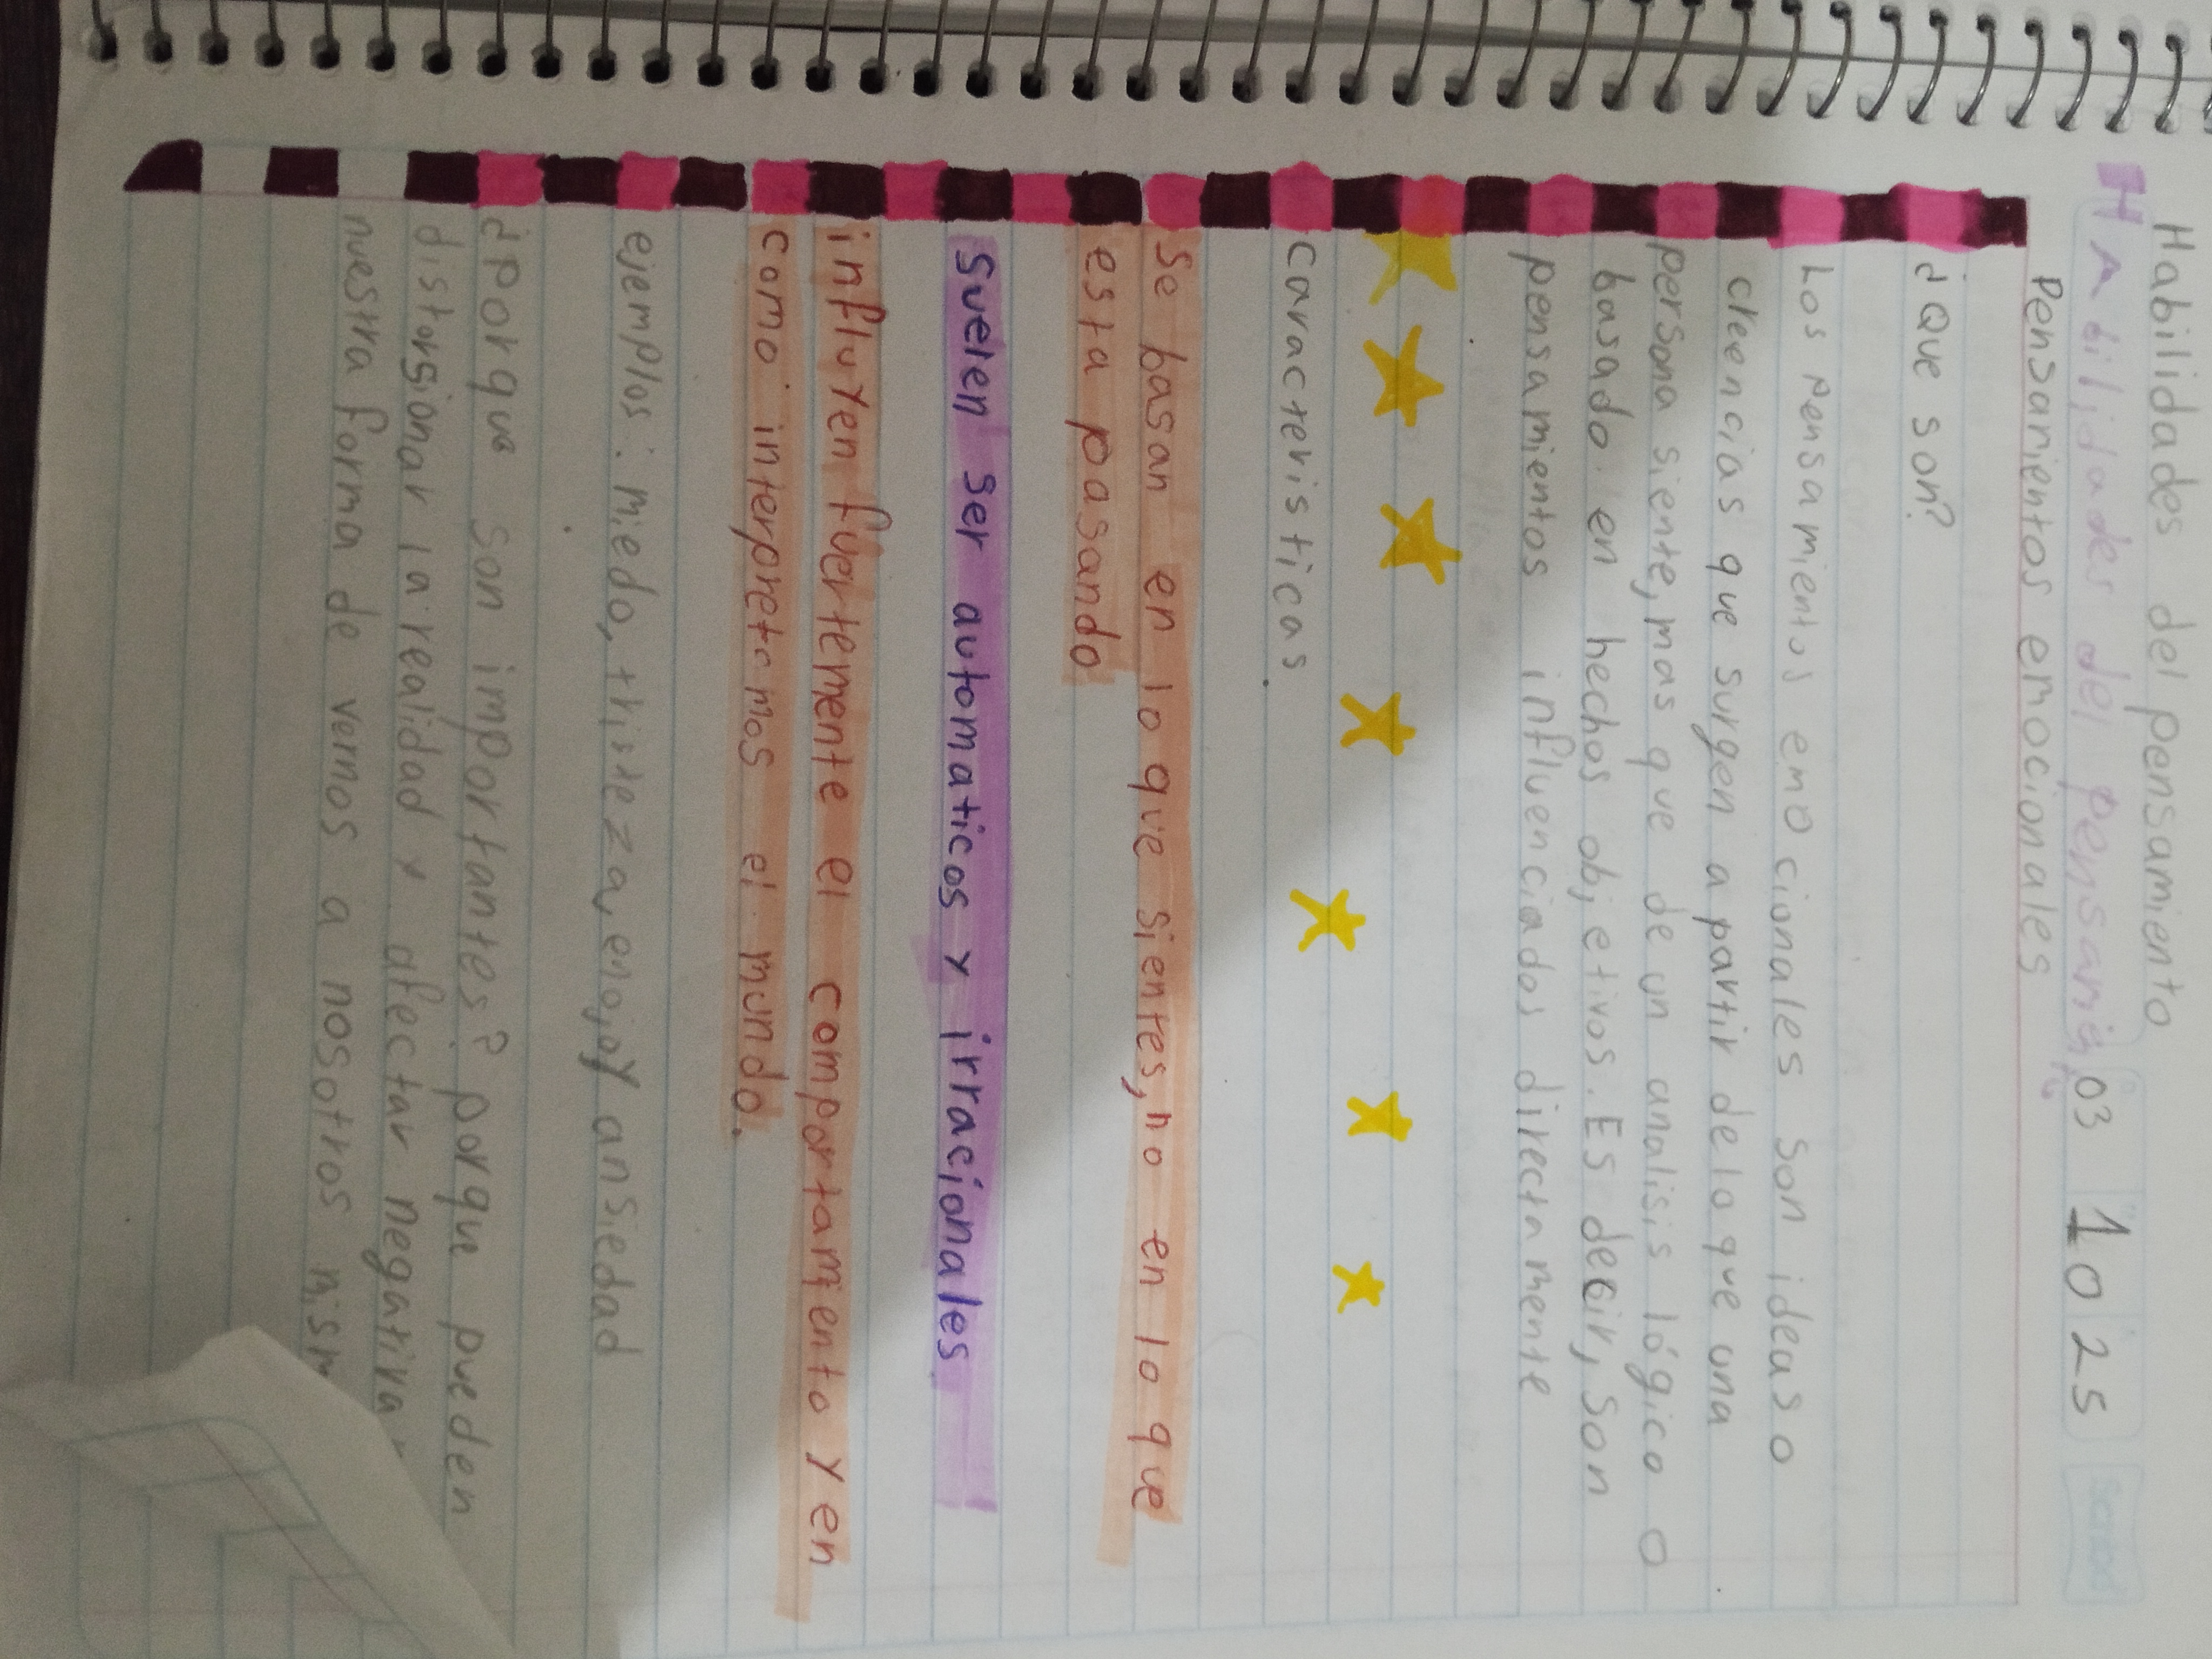 Habilidades del pensamiento
Habilidades del pensami 03 10 25
Pensamientos emocionales
¿Que son?
Los pensamientos emocionales son ideas o
creencias que surgen a partir de lo que una
persona siente, mas que de un analisis lógico o
basado en hechos objetivos. Es decir, son
pensamientos influenciados directamente
caracteristicas
Se basan en lo que sientes, no en lo que
esta pasando
Suelen ser automaticos y irracionales
influyen fuertemente el comportamiento y en
como interpretamos el mundo.
ejemplos: miedo, tristeza, enojo y ansiedad
¿porque son importantes? porque pueden
distorsionar la realidad y afectar negativa
nuestra forma de vernos a nosotros mism